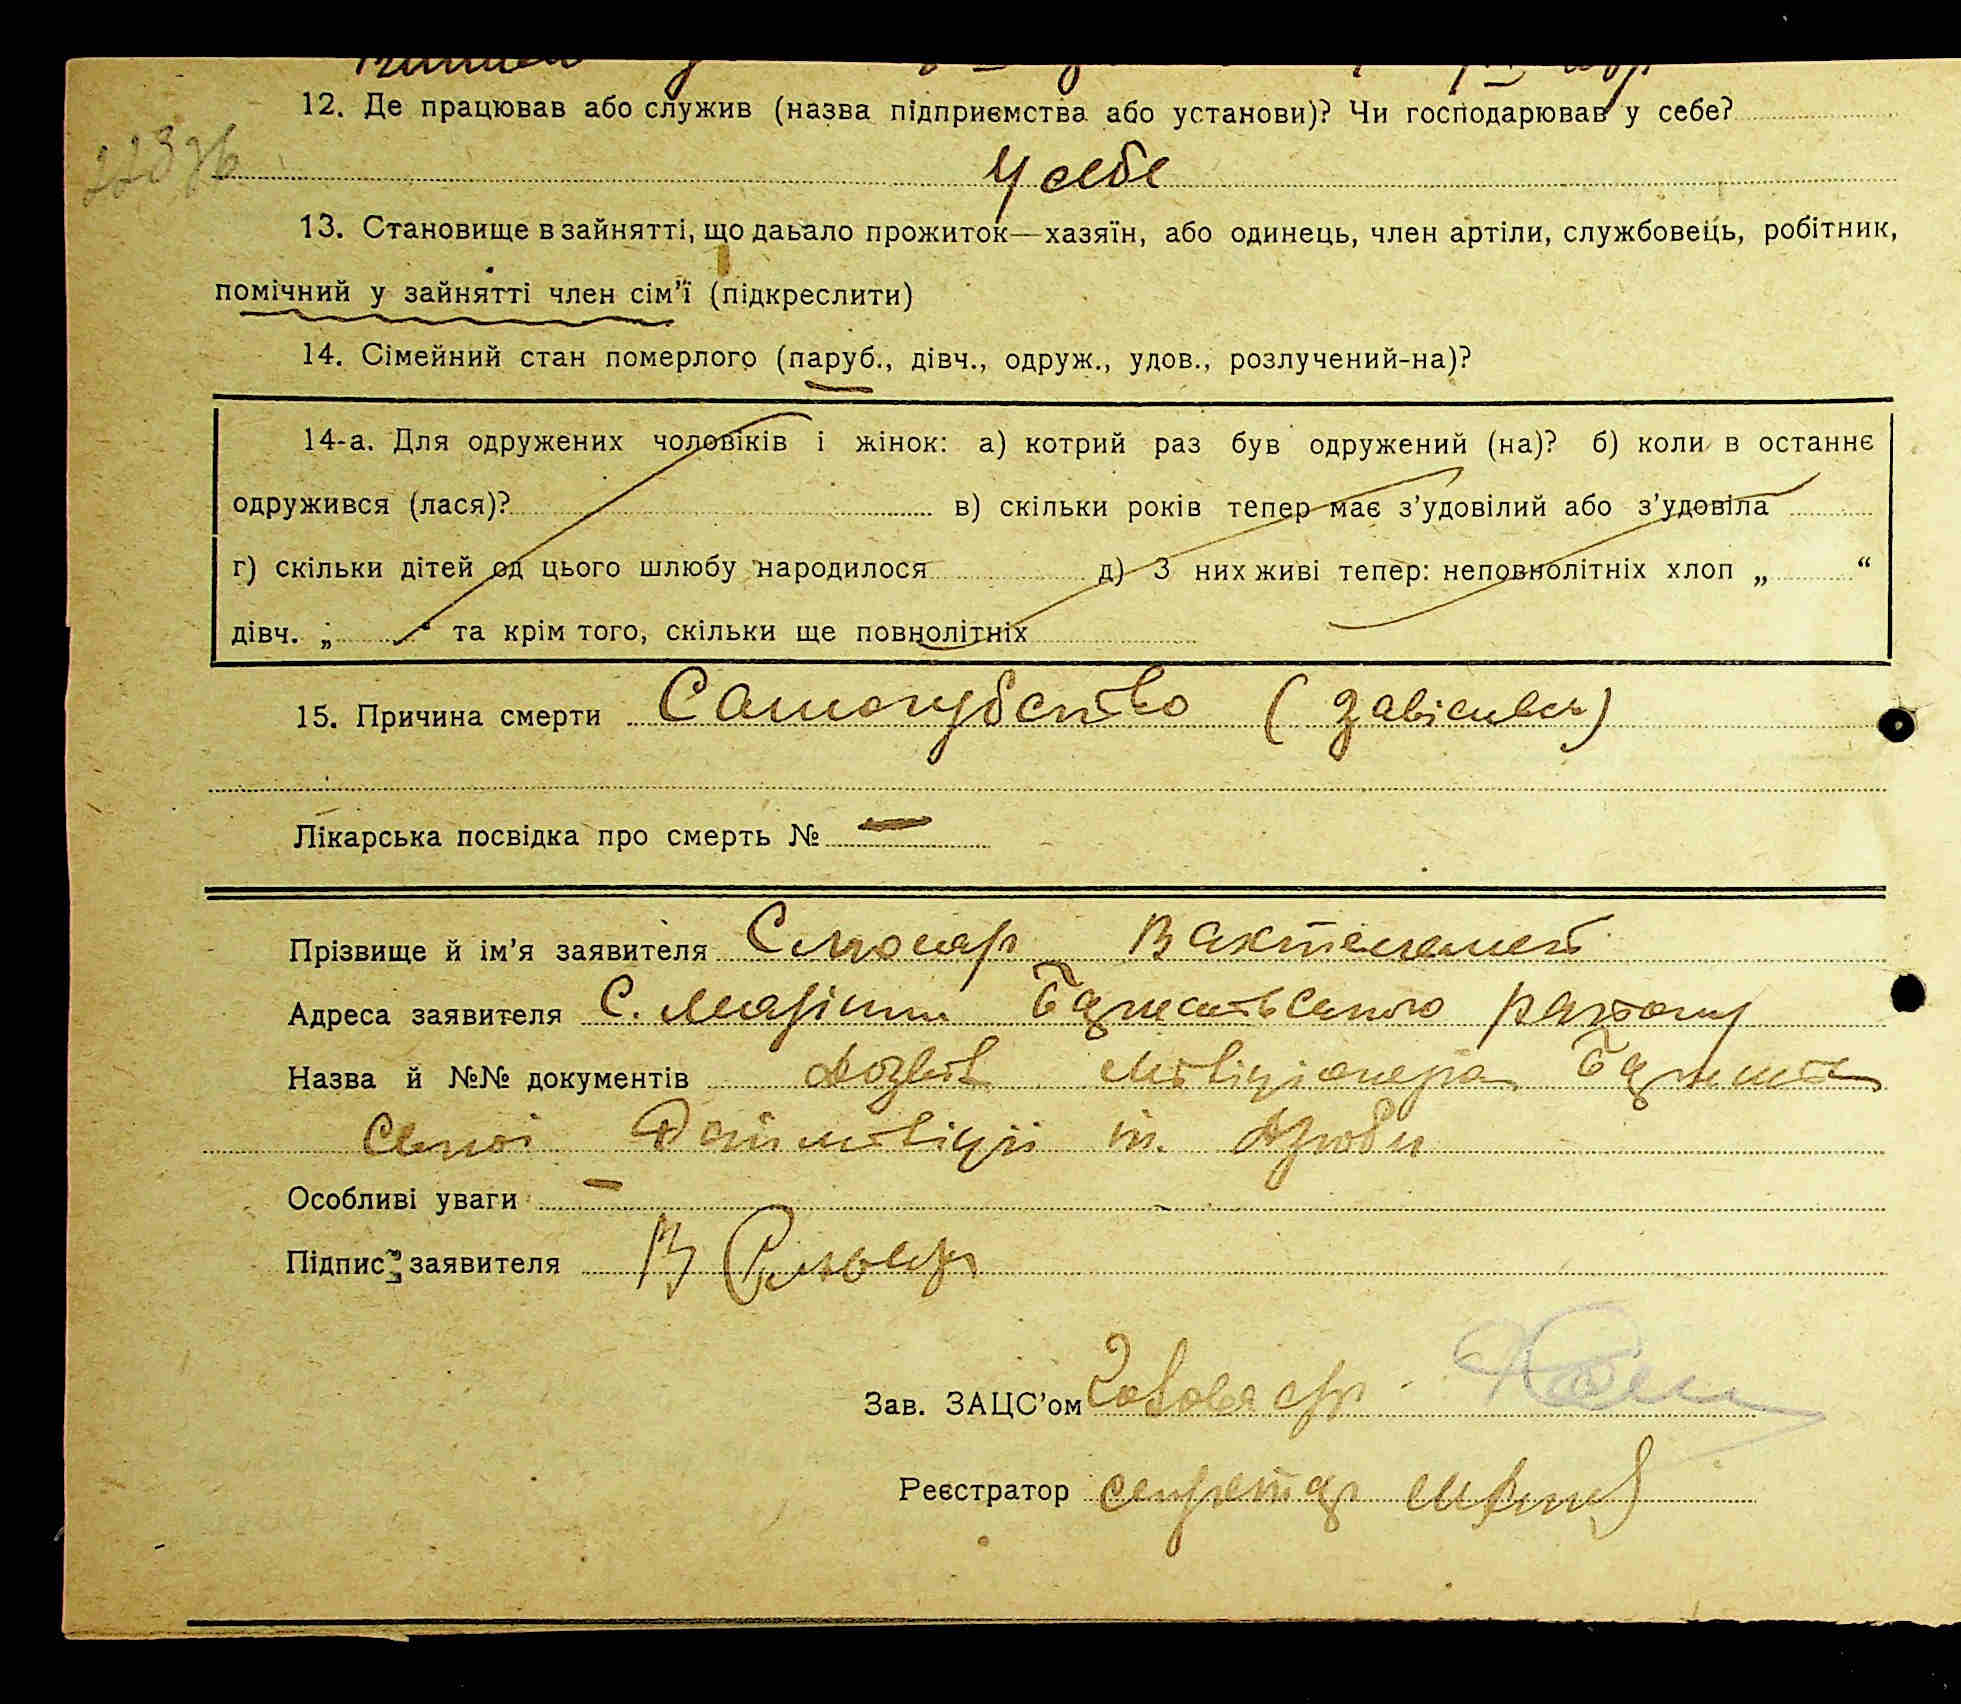 12. Де працював або служив (назва підприємства або установи)? Чи господарював у себе?
У себе
13. Становище в зайнятті, що давало прожиток—хазяїн, або одинець, член артіли, службовець, робітник,
помічний у зайнятті член сім’ї (підкреслити)
14. Сімейний стан померлого (паруб., дівч., одруж., удов., розлучений-на)?
14-а. Для одружених чоловіків і жінок: а) котрий раз був одружений (на)? б) коли в останнє
одружився (лася)? в) скільки років тепер має з’удовілий або з’удовіла
г) скільки дітей од цього шлюбу народилося д) З них живі тепер: неповнолітніх хлоп „ “
дівч. „ “ та крім того, скільки ще повнолітніх
15. Причина смерти Самогубство (завісився)
Лікарська посвідка про смерть № —
Прізвище й ім’я заявителя
Адреса заявителя С. району
Назва й №№ документів Дозвіл міліціонера
ської
Особливі уваги —
Підпис заявителя В
Зав. ЗАЦС’ом Голова с/р
Реєстратор секретар